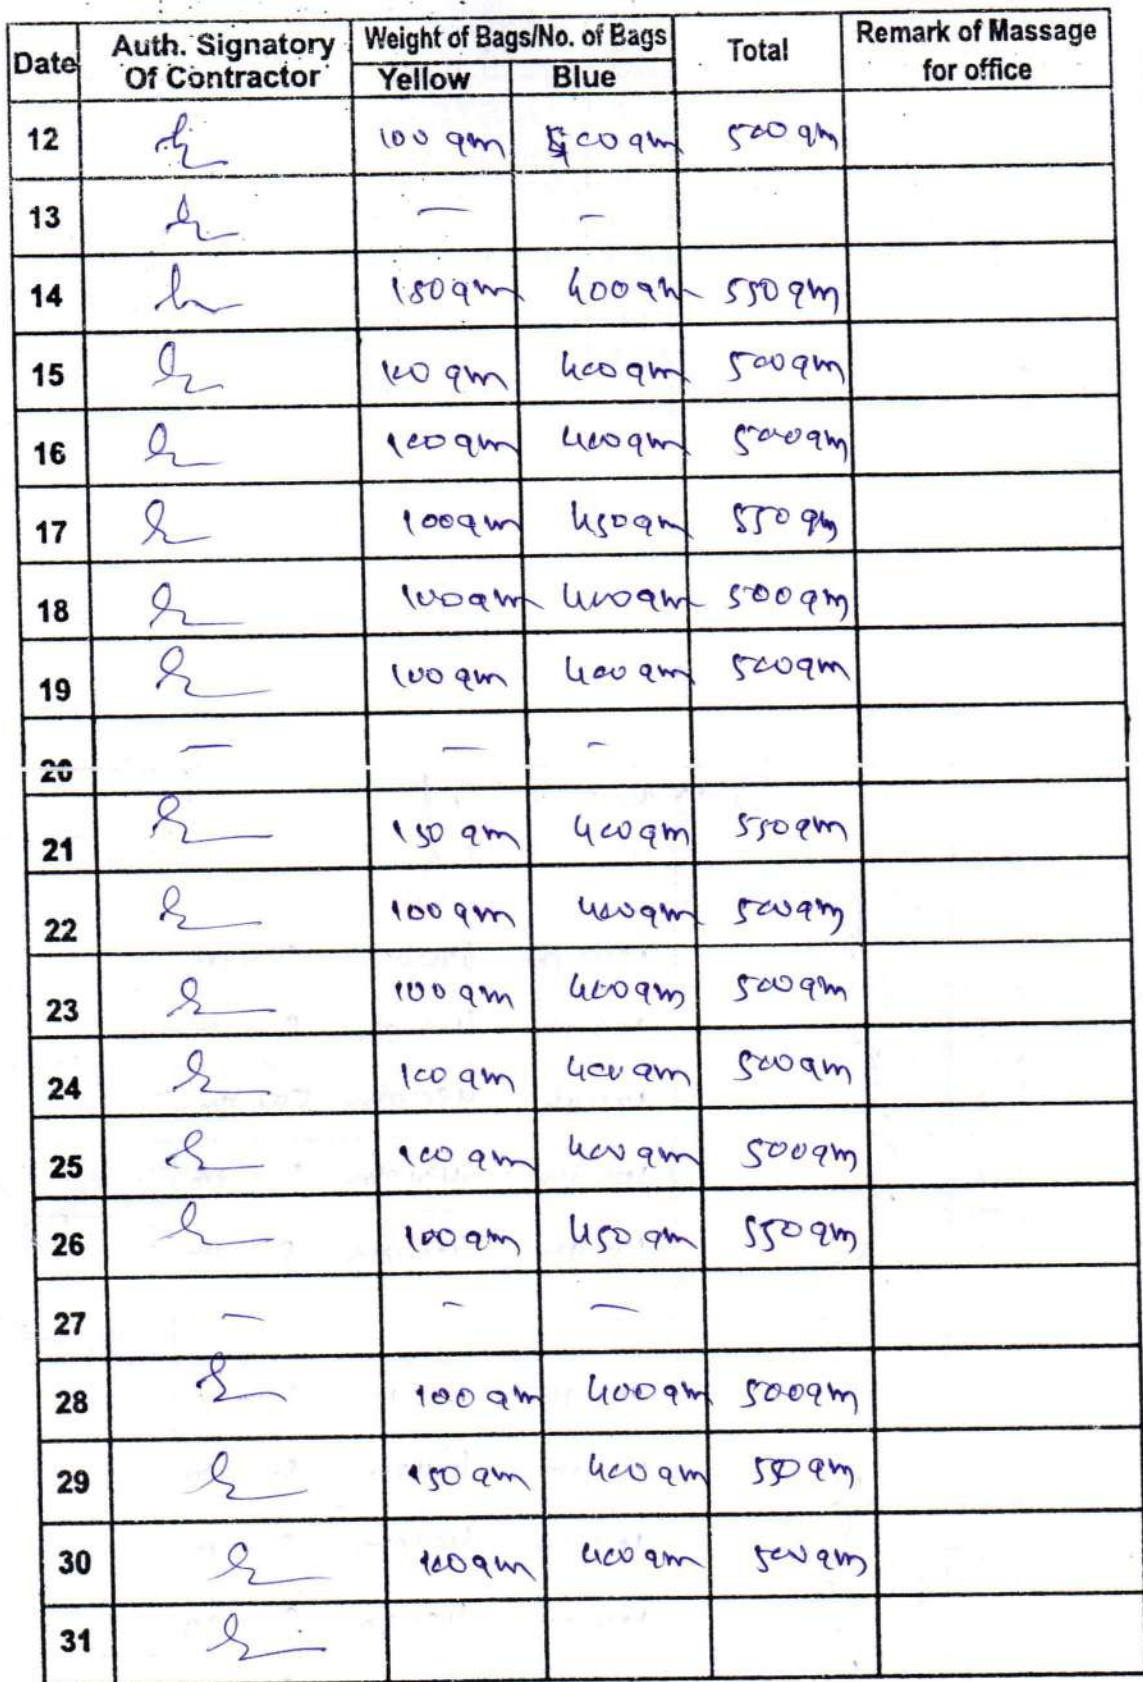 Date Auth. Signatory Of Contractor Weight of Bags/No. of Bags Yellow Blue Total Remark of Massage for office
12 100 gm 400 gm 500 gm
13 — –
14 150 gm 400 gm 550 gm
15 100 gm 400 gm 500 gm
16 100 gm 400 gm 500 gm
17 100 gm 450 gm 550 gm
18 100 gm 400 gm 500 gm
19 100 gm 400 gm 500 gm
20 — — –
21 150 gm 400 gm 550 gm
22 100 gm 400 gm 500 gm
23 100 gm 400 gm 500 gm
24 100 gm 400 gm 500 gm
25 100 gm 400 gm 500 gm
26 100 gm 450 gm 550 gm
27 — – —
28 100 gm 400 gm 500 gm
29 150 gm 400 gm 550 gm
30 100 gm 400 gm 500 gm
31